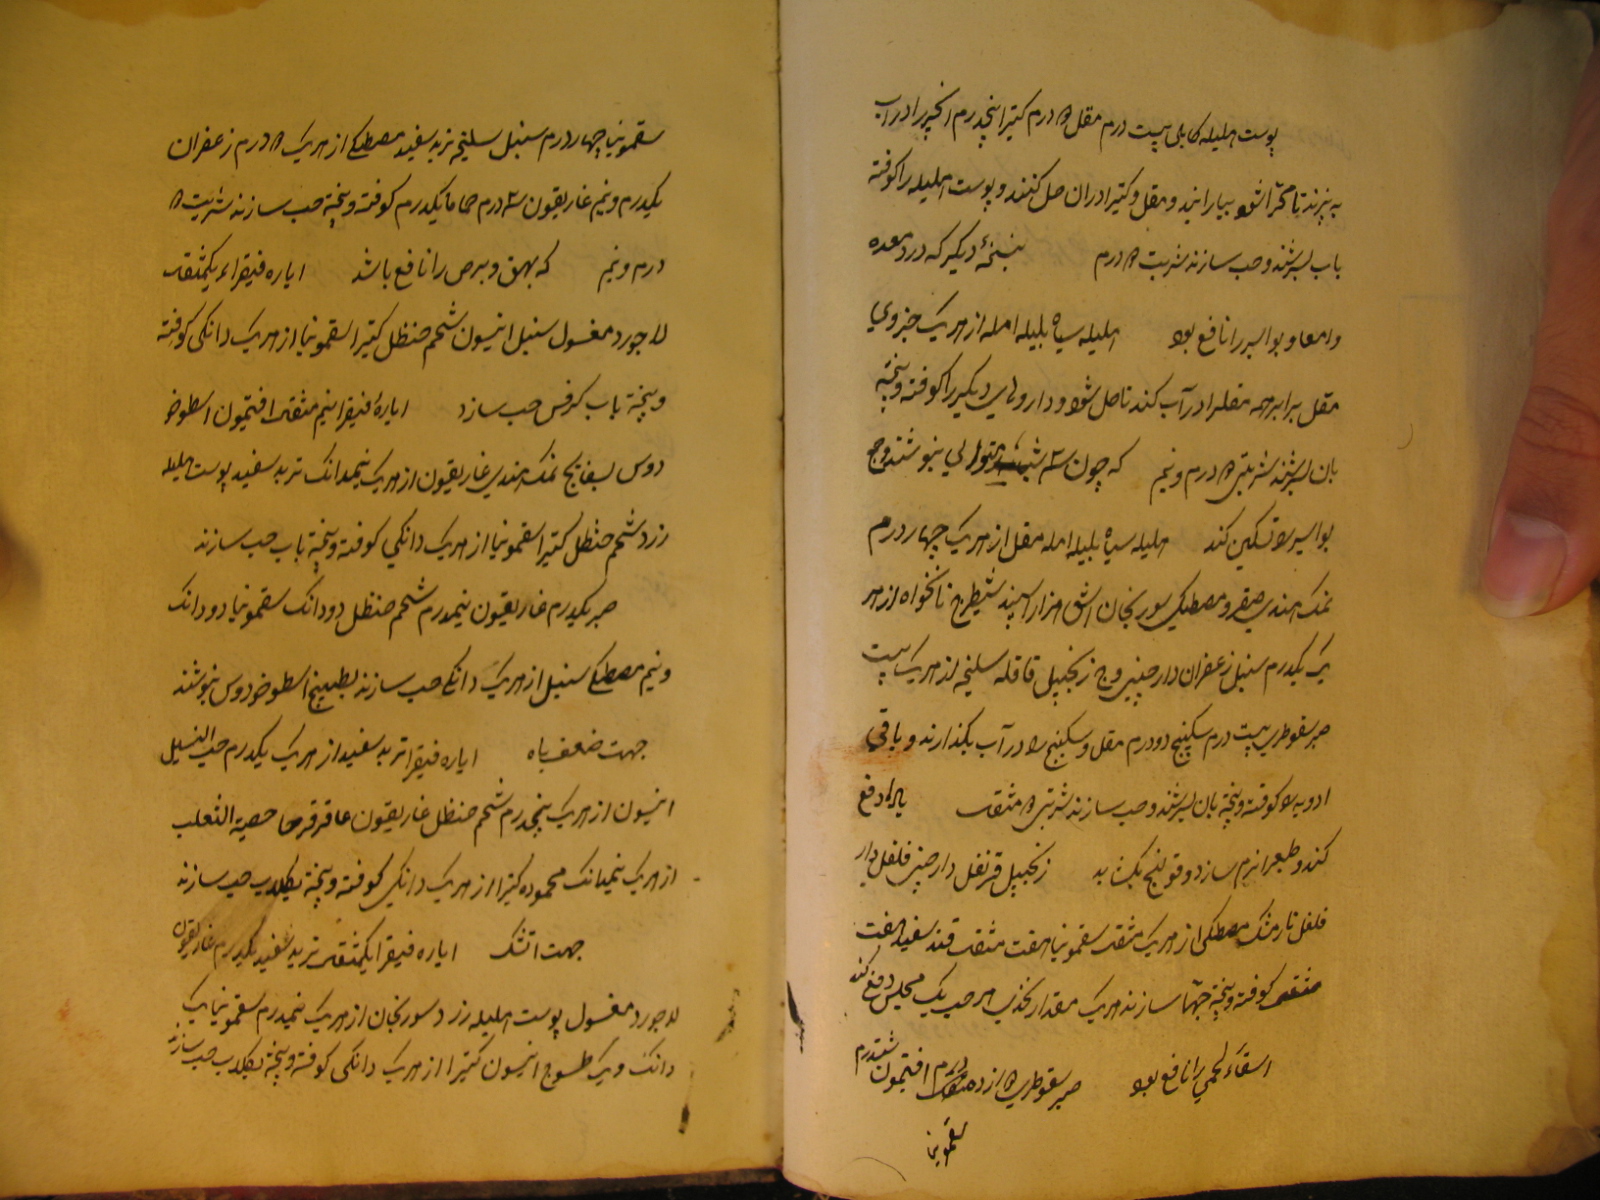 پوست هلیله کابلی بیست درم مقل ۵ درم کتیرا پنجدرم انخیر را در آب
به پزند تا مهرا شود بپالایند و مقل و کتیرا دران حل کنند و پوست هلیله را کوفته
باب بسرشند و حب سازند شربت ۵ درم بنسخهٔ دیگر که درد معده
و امعا و بواسیر را نافع بود هلیله سیاه بلیله امله از هریک جزوی
مقل برابر همه مقل را در آب کند تا حل شود و داروهای دیگر را کوفته و بیخته
بان بسرشند شربتی ۵ درم و نیم که چون سه شب متوالی بنوشند وجع
بواسیر را تسکین کند هلیله سیاه بلیله امله مقل از هریک چهار درم
نمک هندی صیقرو مصطکی سورنجان اشق هزار اسپند شیطرج نانخواه از هر
یک یکدرم سنبل زعفران دارچینی وج زنجبیل قاقله سلیخه از هریک بیست
صبر سقوطری بیست درم سکبینج دو درم مقل و سکبینج را در آب بگذارند و باقی
ادویه را کوفته و بیخته بان بسرشند و حب سازند شربتی ۵ مثقال دفع
کند و طبع را نرم سازد و قولنج بگشاید زنجبیل قرنفل دارچینی فلفل دار
فلفل نارمشک مصطکی از هریک مثقال سقمونیا هفت مثقال قند سفید هفت
مثقال کوفته و بیخته حبها سازند هریک مقدار نخودی هر حب یک مجلس دفع کند
استسقاء لحمی را نافع بود صبر سقوطری دوازده درم افتیمون هشتدرم
سقمونیا
سقمونیا چهار درم سنبل سلیخه تربد سفید مصطکی از هریک ۵ درم زعفران
یکدرم و نیم غاریقون سه درم حماما یکدرم کوفته و بیخته حب سازند شربت ۵
درم و نیم که بهق و برص را نافع باشد ایاره فیقراء یکمثقال
لاجورد مغسول سنبل انیسون شحم حنظل کتیرا سقمونیا از هریک دانکی کوفته
و بیخته باب کرفس حب سازد ایارهٔ فیقرا نیم مثقال افتیمون اسطوخو
دوس بسفایج نمک هندی غاریقون از هریک نیمدانک تربد سفید پوست هلیله
زرد شحم حنظل کتیرا سقمونیا از هریک دانکی کوفته و بیخته باب حب سازند
صبر یکدرم غاریقون نیمدرم شحم حنظل دو دانک سقمونیا دو دانک
و نیم مصطکی سنبل از هریک دانکی حب سازند بطبیخ اسطوخودوس بنوشند
جهت ضعف باه ایاره فیقرا تربد سفید از هریک یکدرم حب النیل
انیسون از هریک پنجدرم شحم حنظل غاریقون عاقرقرحا خصیة الثعلب
از هریک نیمدانک محموده کتیرا از هریک دانکی کوفته و بیخته بکلاب حب سازند
جهت آتشک ایاره فیقرا یکمثقال تربد سفید یکدرم غاریقون
لاجورد مغسول پوست هلیله زرد سورنجان از هریک نیمدرم سقمونیا یک
دانک و یک طسوج انیسون کتیرا از هریک دانکی کوفته و بیخته بکلاب حب سازند